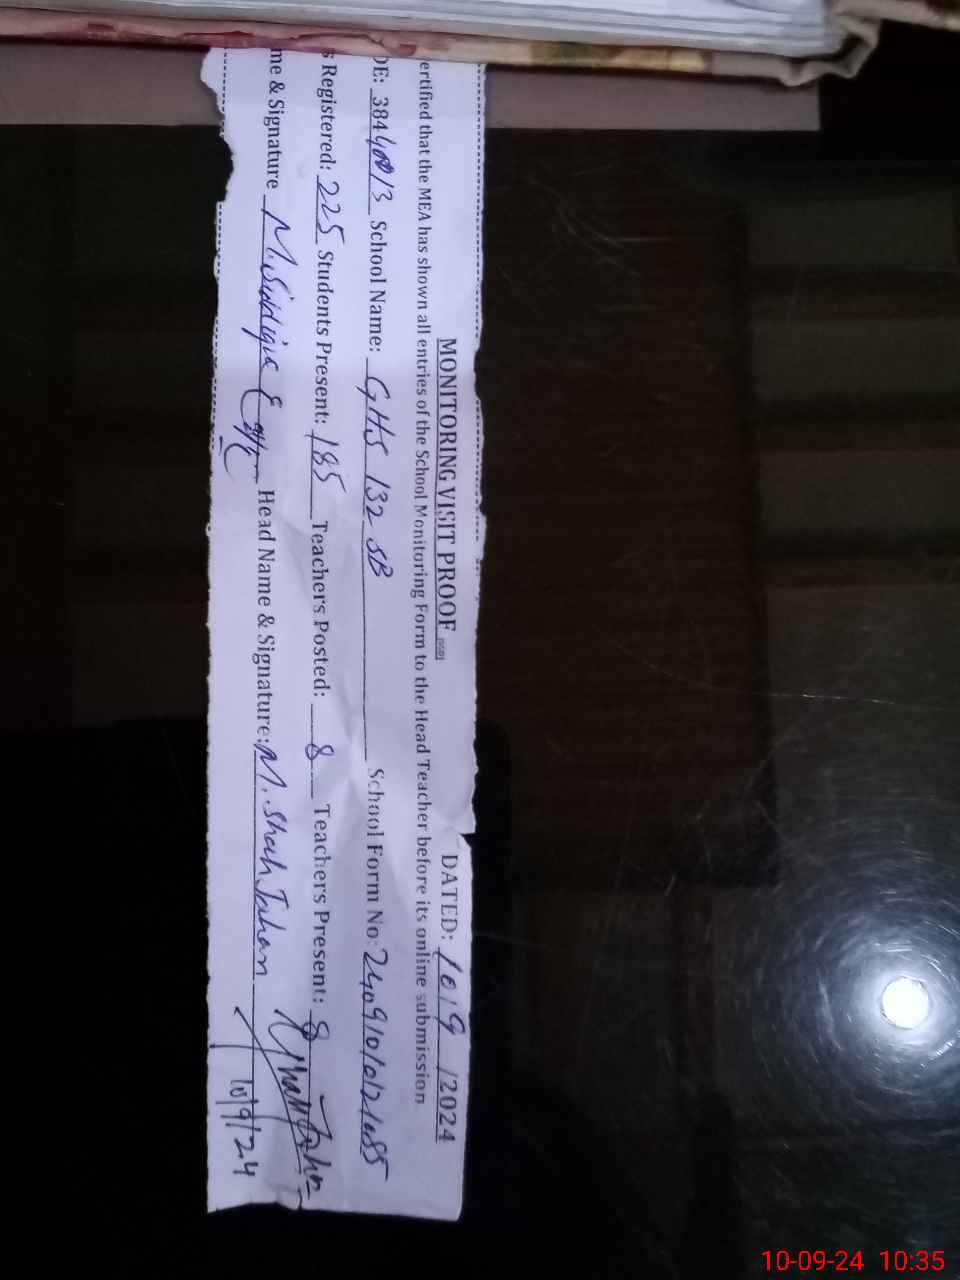 MONITORING VISIT PROOF DATED: 10/9/2024
ertified that the MEA has shown all entries of the School Monitoring Form to the Head Teacher before its online submission
DE: 38440013 School Name: GHS 132 SB School Form No:
s Registered: 225 Students Present: 185 Teachers Posted: 8 Teachers Present: 8
me & Signature M.Siddique Head Name & Signature: M. Shah Jahan
10/9/24
10-09-24 10:35